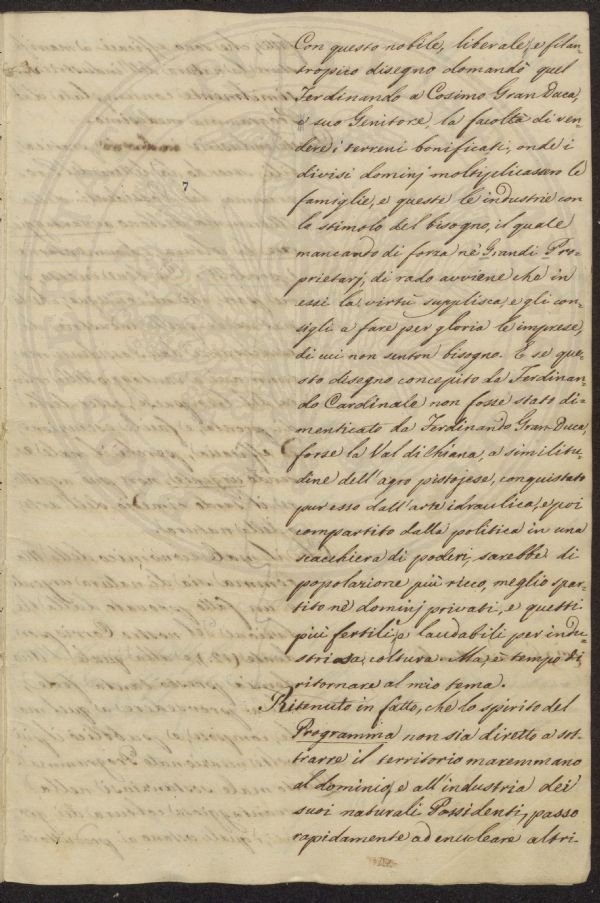 Con questo nobile, liberale, e filan-
tropico disegno domandò quel
Ferdinando a Cosimo Gran Duca,
e suo Genitore, la facoltà di ven-
dere i terreni bonificati, onde i
divisi dominj moltiplicassero le
famiglie, e queste le industrie con
lo stimolo del bisogno, il quale
mancando di forza nè Grandi Pro-
prietarj, di rado avviene che in
essi la virtù supplisca, e gli con-
sigli a fare per gloria le imprese,
di cui non senton bisogno. E se que-
sto disegno concepito da Ferdinan-
do Cardinale non fosse stato di-
menticato da Ferdinando Gran-Duca,
forse la Val di Chiana, a similitu-
dine dell'agro pistojese, conquistato
pur esso dall'arte idraulica, e poi
compartito dalla politica in una
scacchiera di poderi, sarebbe di
popolazione più ricco, meglio spar-
tito nè dominj privati, e questi
più fertili, e laudabili per indu-
striosa coltura. Ma, è tempo di
ritornare al mio tema.
Ritenuto in fatto, che lo spirito del
Programma non sia diretto a sot-
trarre il territorio maremmano
al dominio, e all'industria dei
suoi naturali Possidenti, passo
rapidamente ad enucleare altri-
7